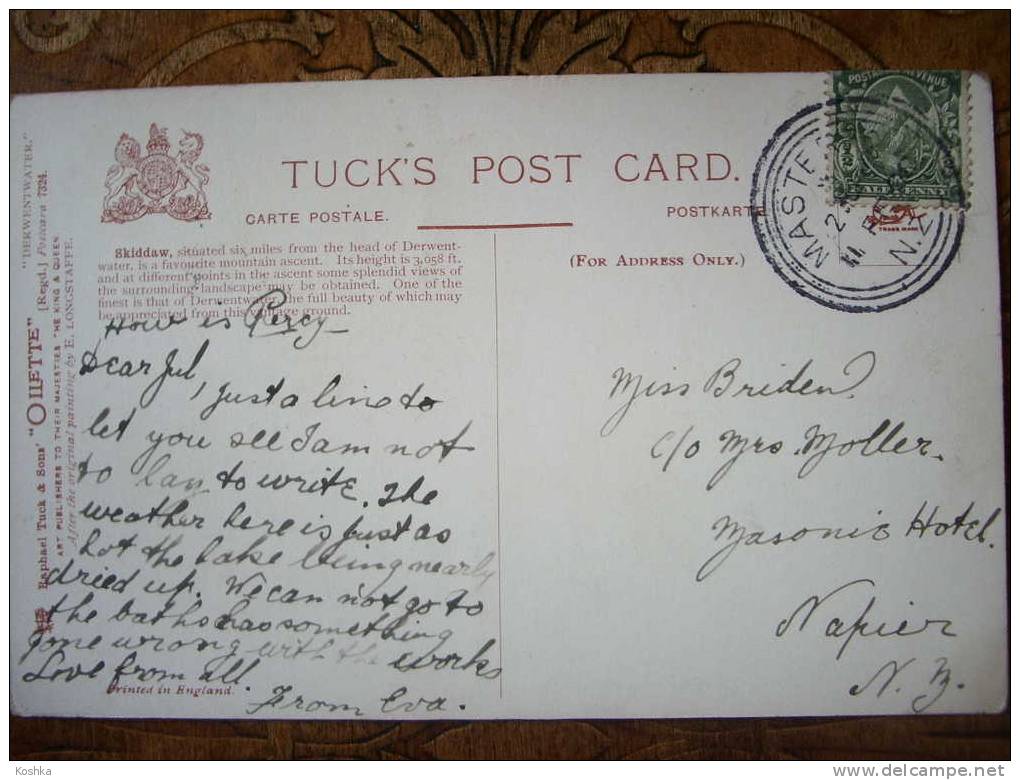 TUCK'S POST CARD.
CARTE POSTALE.
POSTKARTE
(FOR ADDRESS ONLY.)
Skiddaw, situated six miles from the head of Derwent-
water, is a favourite mountain ascent. Its height is 3,058 ft.
and at different points in the ascent some splendid views of
the surrounding landscape may be obtained. One of the
finest is that of Derwentwater, the full beauty of which may
be appreciated from this vantage ground.
How is Percy
Dear Jul,
just a line to
let you see I am not
to lay to write. The
weather here is just as
hot the lake being nearly
dried up. We can not go to
the baths has something
gone wrong with the works
Love from all
From Eva.
Printed in England.
Miss Briden
c/o Mrs. Moller.
Masonic Hotel.
Napier
N. Z.
POSTAGE REVENUE
HALF PENNY
MASTE
N.Z
TRADE MARK
"DERWENTWATER."
Raphael Tuck & Sons' "OILETTE" [Regd.] Postcard 7324.
ART PUBLISHERS TO THEIR MAJESTIES THE KING & QUEEN.
After the original painting by E. LONGSTAFFE.
Koshka
delcampe.net